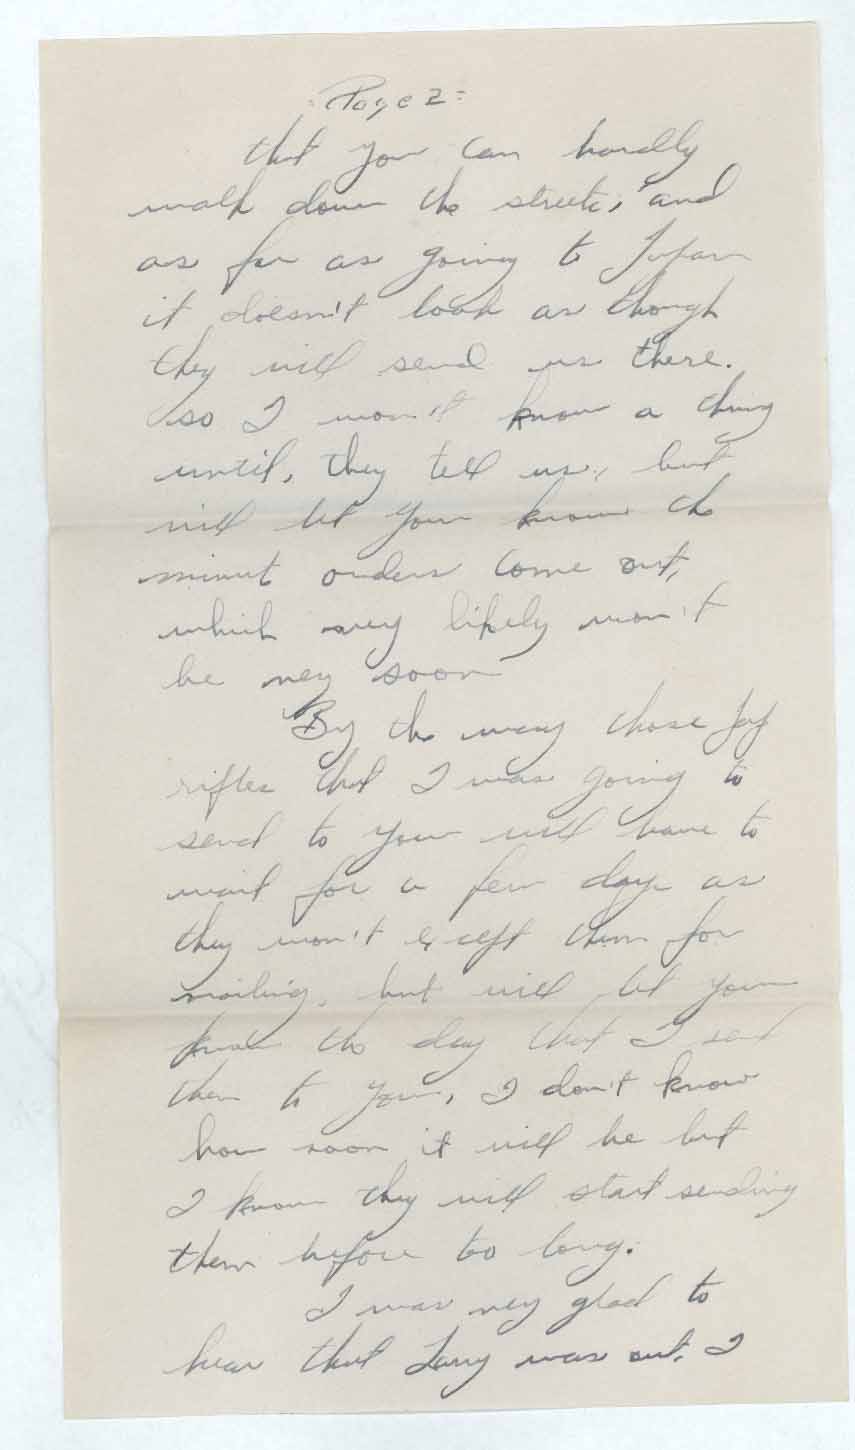 Page 2
that you can hardly
walk down the streets, and
as far as going to Japan
it doesn't look as though
they will send us there.
so I won't know a thing
until, they tell us, but
will let you know the
minut orders come out,
which very likely won't
be very soon
By the way those Jap
rifles that I was going to
send to you will have to
wait for a few days as
they won't except them for
mailing, but will let you
know the day that I send
them to you, I don't know
how soon it will be but
I know they will start sending
them before too long.
I was very glad to
hear that Larry was out. I